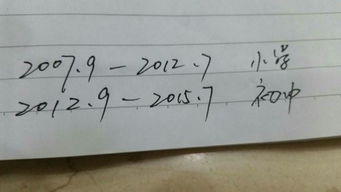 2007.9 - 2012.7 小学
2012.9 - 2015.7 初中